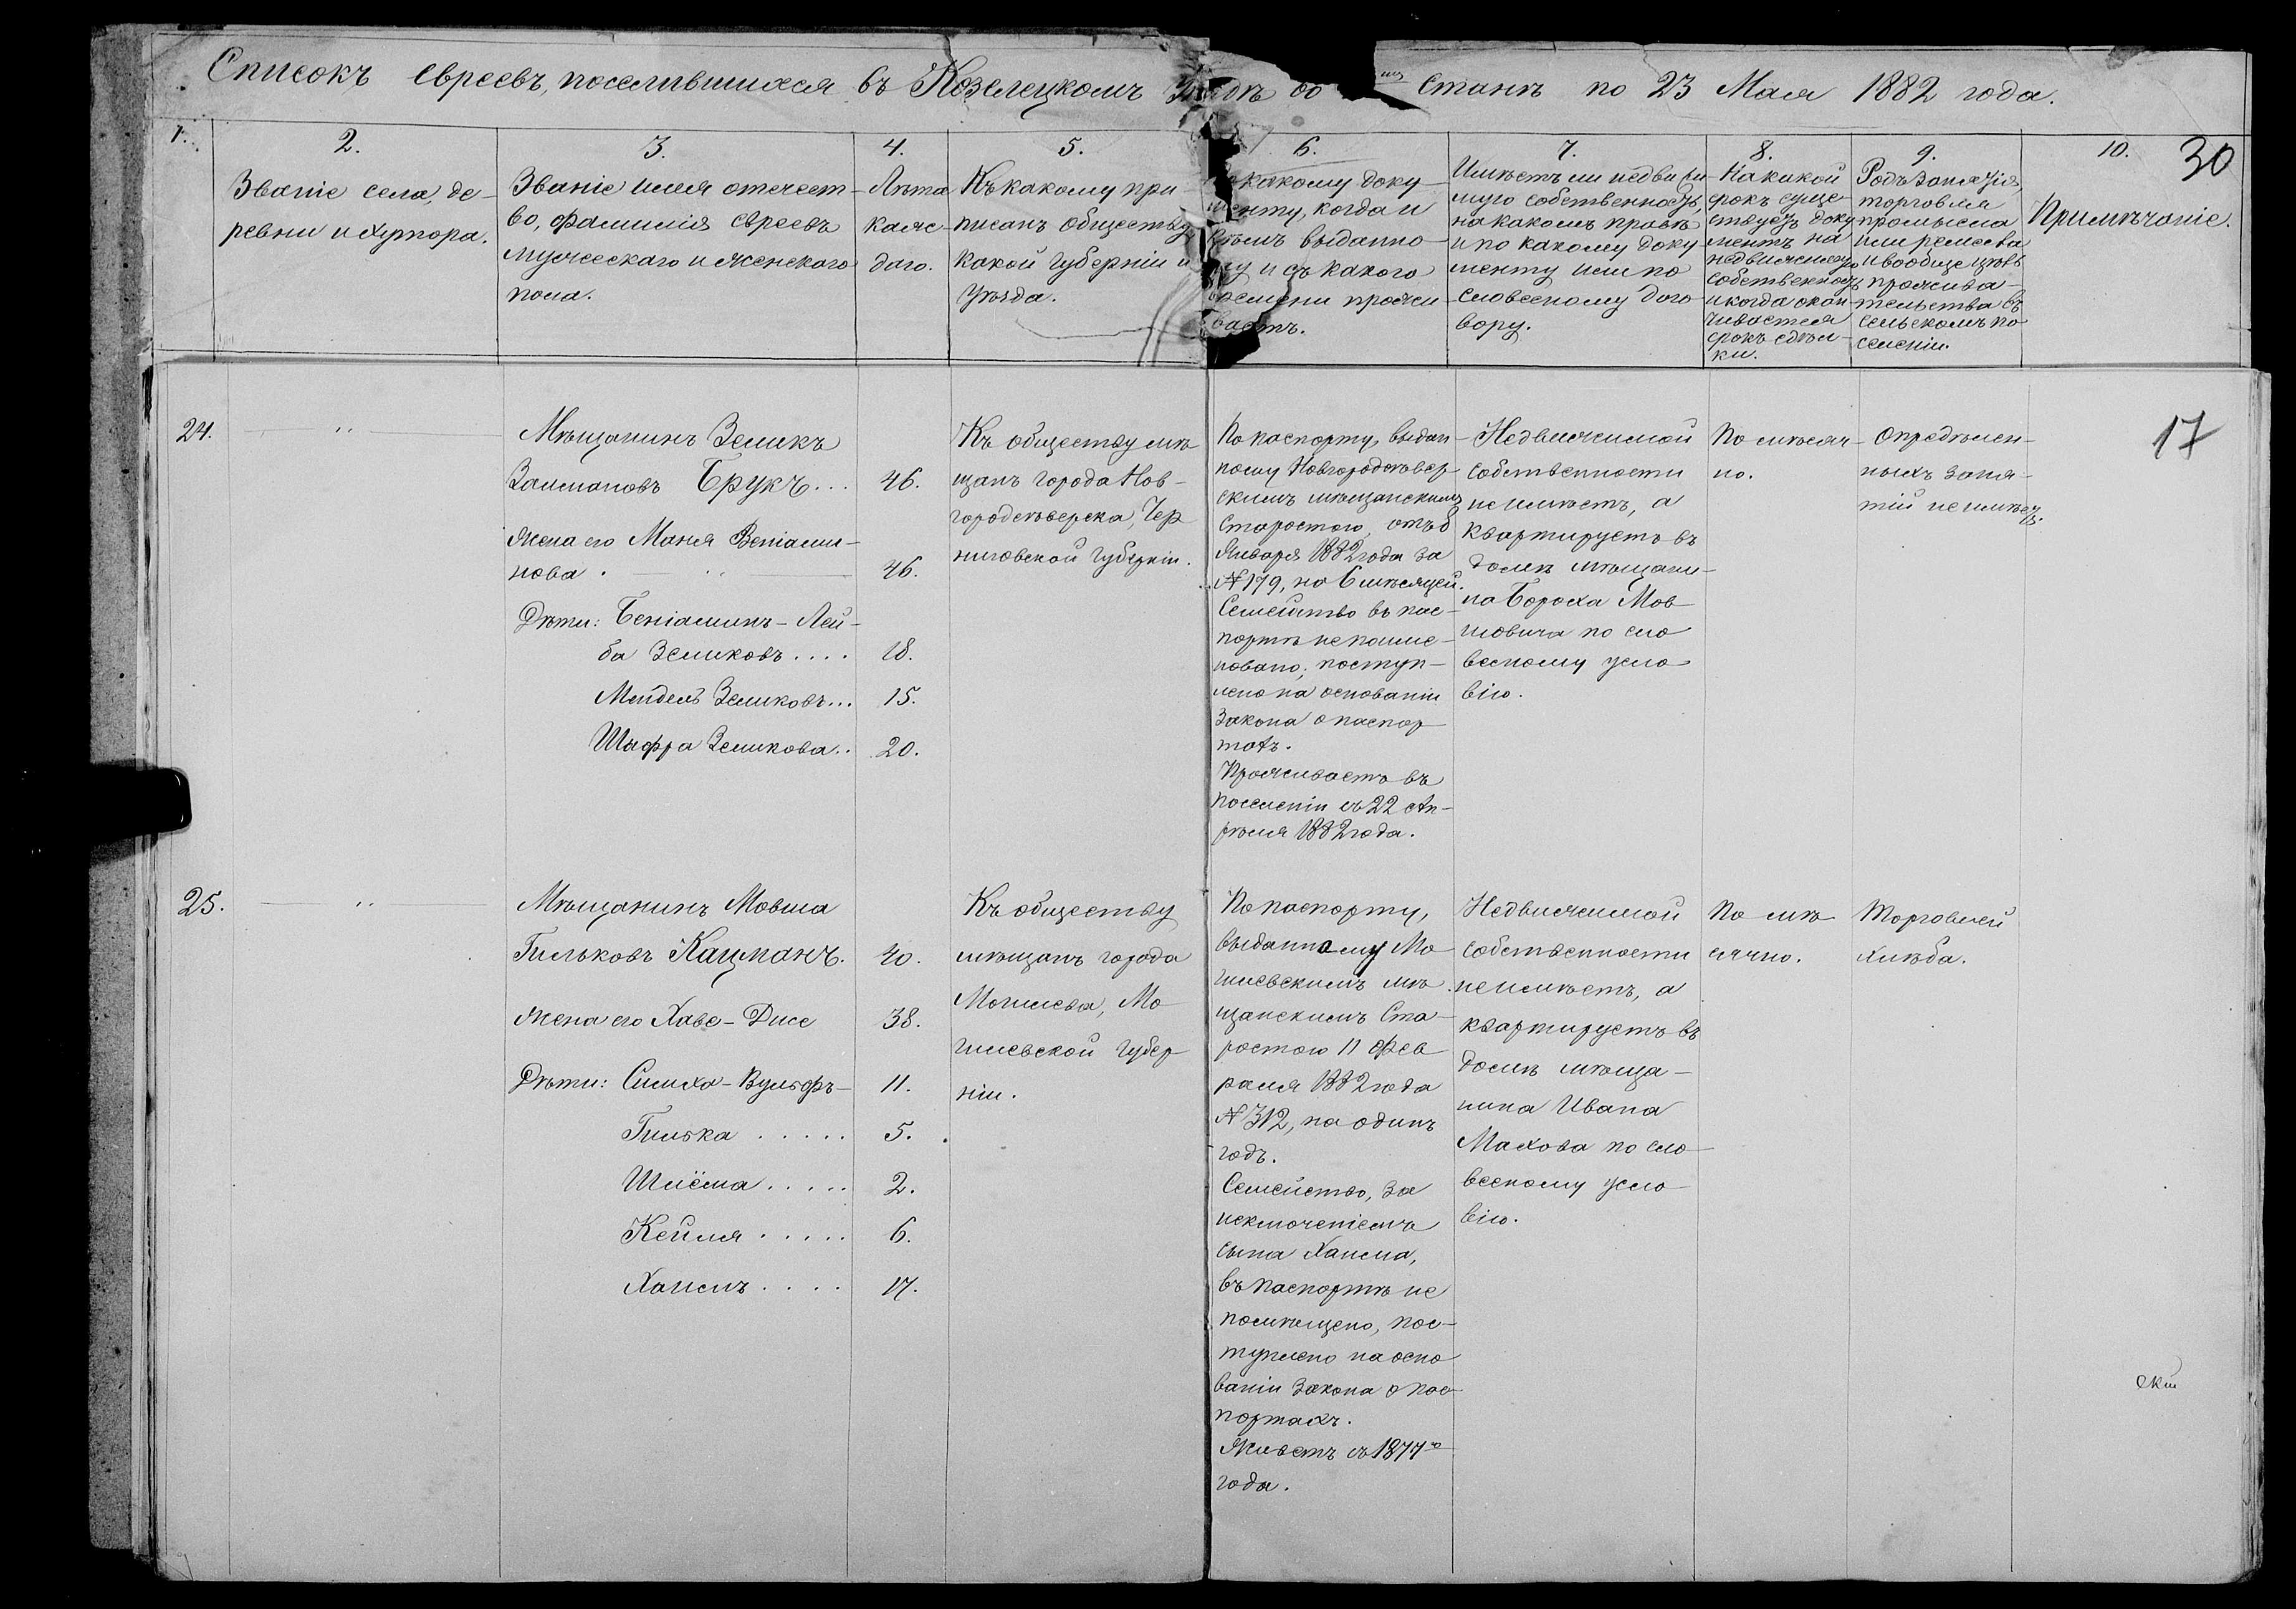 Списокъ евреевъ, поселившихся въ Козелецкомъ Уѣздѣ во станѣ по 23 Мая 1882 года.
1.
2.
Званіе села, де-
ревни и хутора.
3.
Званіе имя отчест-
во, фамилія евреевъ
мужескаго и женскаго
пола.
4.
Лѣта
каж-
даго.
5.
Къ какому при-
писанъ обществу
какой губерніи и
уѣзда.
6.
По какому доку-
менту, когда и
кѣмъ выданно-
му и съ какого
времени прожи-
ваетъ.
7.
Имѣетъ ли недвижи-
мую собственность,
на какомъ правѣ
и по какому доку
менту или по
словесному дого
вору.
8.
На какой
срокъ суще-
ствуетъ доку
ментъ на
недвижимую
собственность
и когда окан-
чивается
срокъ сдѣл-
ки.
9.
Родъ занятія,
торговля
промысла
или ремесла
и вообще цѣль
прожива-
тельства въ
сельскомъ по
селеніи.
10.
Примѣчаніе.
30
17
24.
"
Мѣщанинъ Зеликъ
Залмановъ Брукъ... 46.
Жена его Маня Веніами-
нова . " 46.
Дѣти: Беніаминъ-Лей-
ба Зеликовъ.... 18.
Мендель Зеликовъ... 15.
Шифра Зеликова.. 20.
Къ обществу мѣ
щанъ города Нов-
городсѣверска, Чер
ниговской губерніи.
По паспорту, выдан-
ному Новгородсѣвер
скимъ мѣщанскимъ
Старостою, отъ 8
Января 1882 года за
№ 179, на 6 мѣсяцей.
Семейство въ пас-
портѣ не поиме-
новано, поступ-
лено на основаніи
Закона о паспор
тахъ.
Проживаетъ въ
поселеніи съ 22 Ап-
рѣля 1882 года.
Недвижимой
собственности
не имѣетъ, а
квартируетъ въ
домѣ мѣщани-
на Бороха Мов
шовича по сло
весному усло
вію.
По мѣсяч-
но.
Опредѣлен-
ныхъ заня-
тій не имѣетъ.
25.
"
Мѣщанинъ Мовша
Гильковъ Кацманъ. 40.
Жена его Хаве-Дисе 38.
Дѣти: Симха-Вульфъ- 11.
Гилька ..... 5.
Шлёма ..... 2.
Кейля ..... 6.
Хаимъ .... 17.
Къ обществу
мѣщанъ города
Могилева, Мо
гилевской губер
ніи.
По паспорту,
выданному Мо
гилевскимъ мѣ
щанскимъ Ста-
ростою 11 Фев
раля 1882 года
№ 312, на одинъ
годъ.
Семейство, за
исключеніемъ
сына Хаима,
въ паспортѣ не
помѣщено, пос-
туплено на осно
ваніи Закона о пас
портахъ.
Живетъ съ 1877го
года.
Недвижимой
собственности
не имѣетъ, а
квартируетъ въ
домѣ мѣща-
нина Ивана
Махова по сло-
весному усло-
вію.
По мѣ
сячно.
Торговлей
хлѣба.